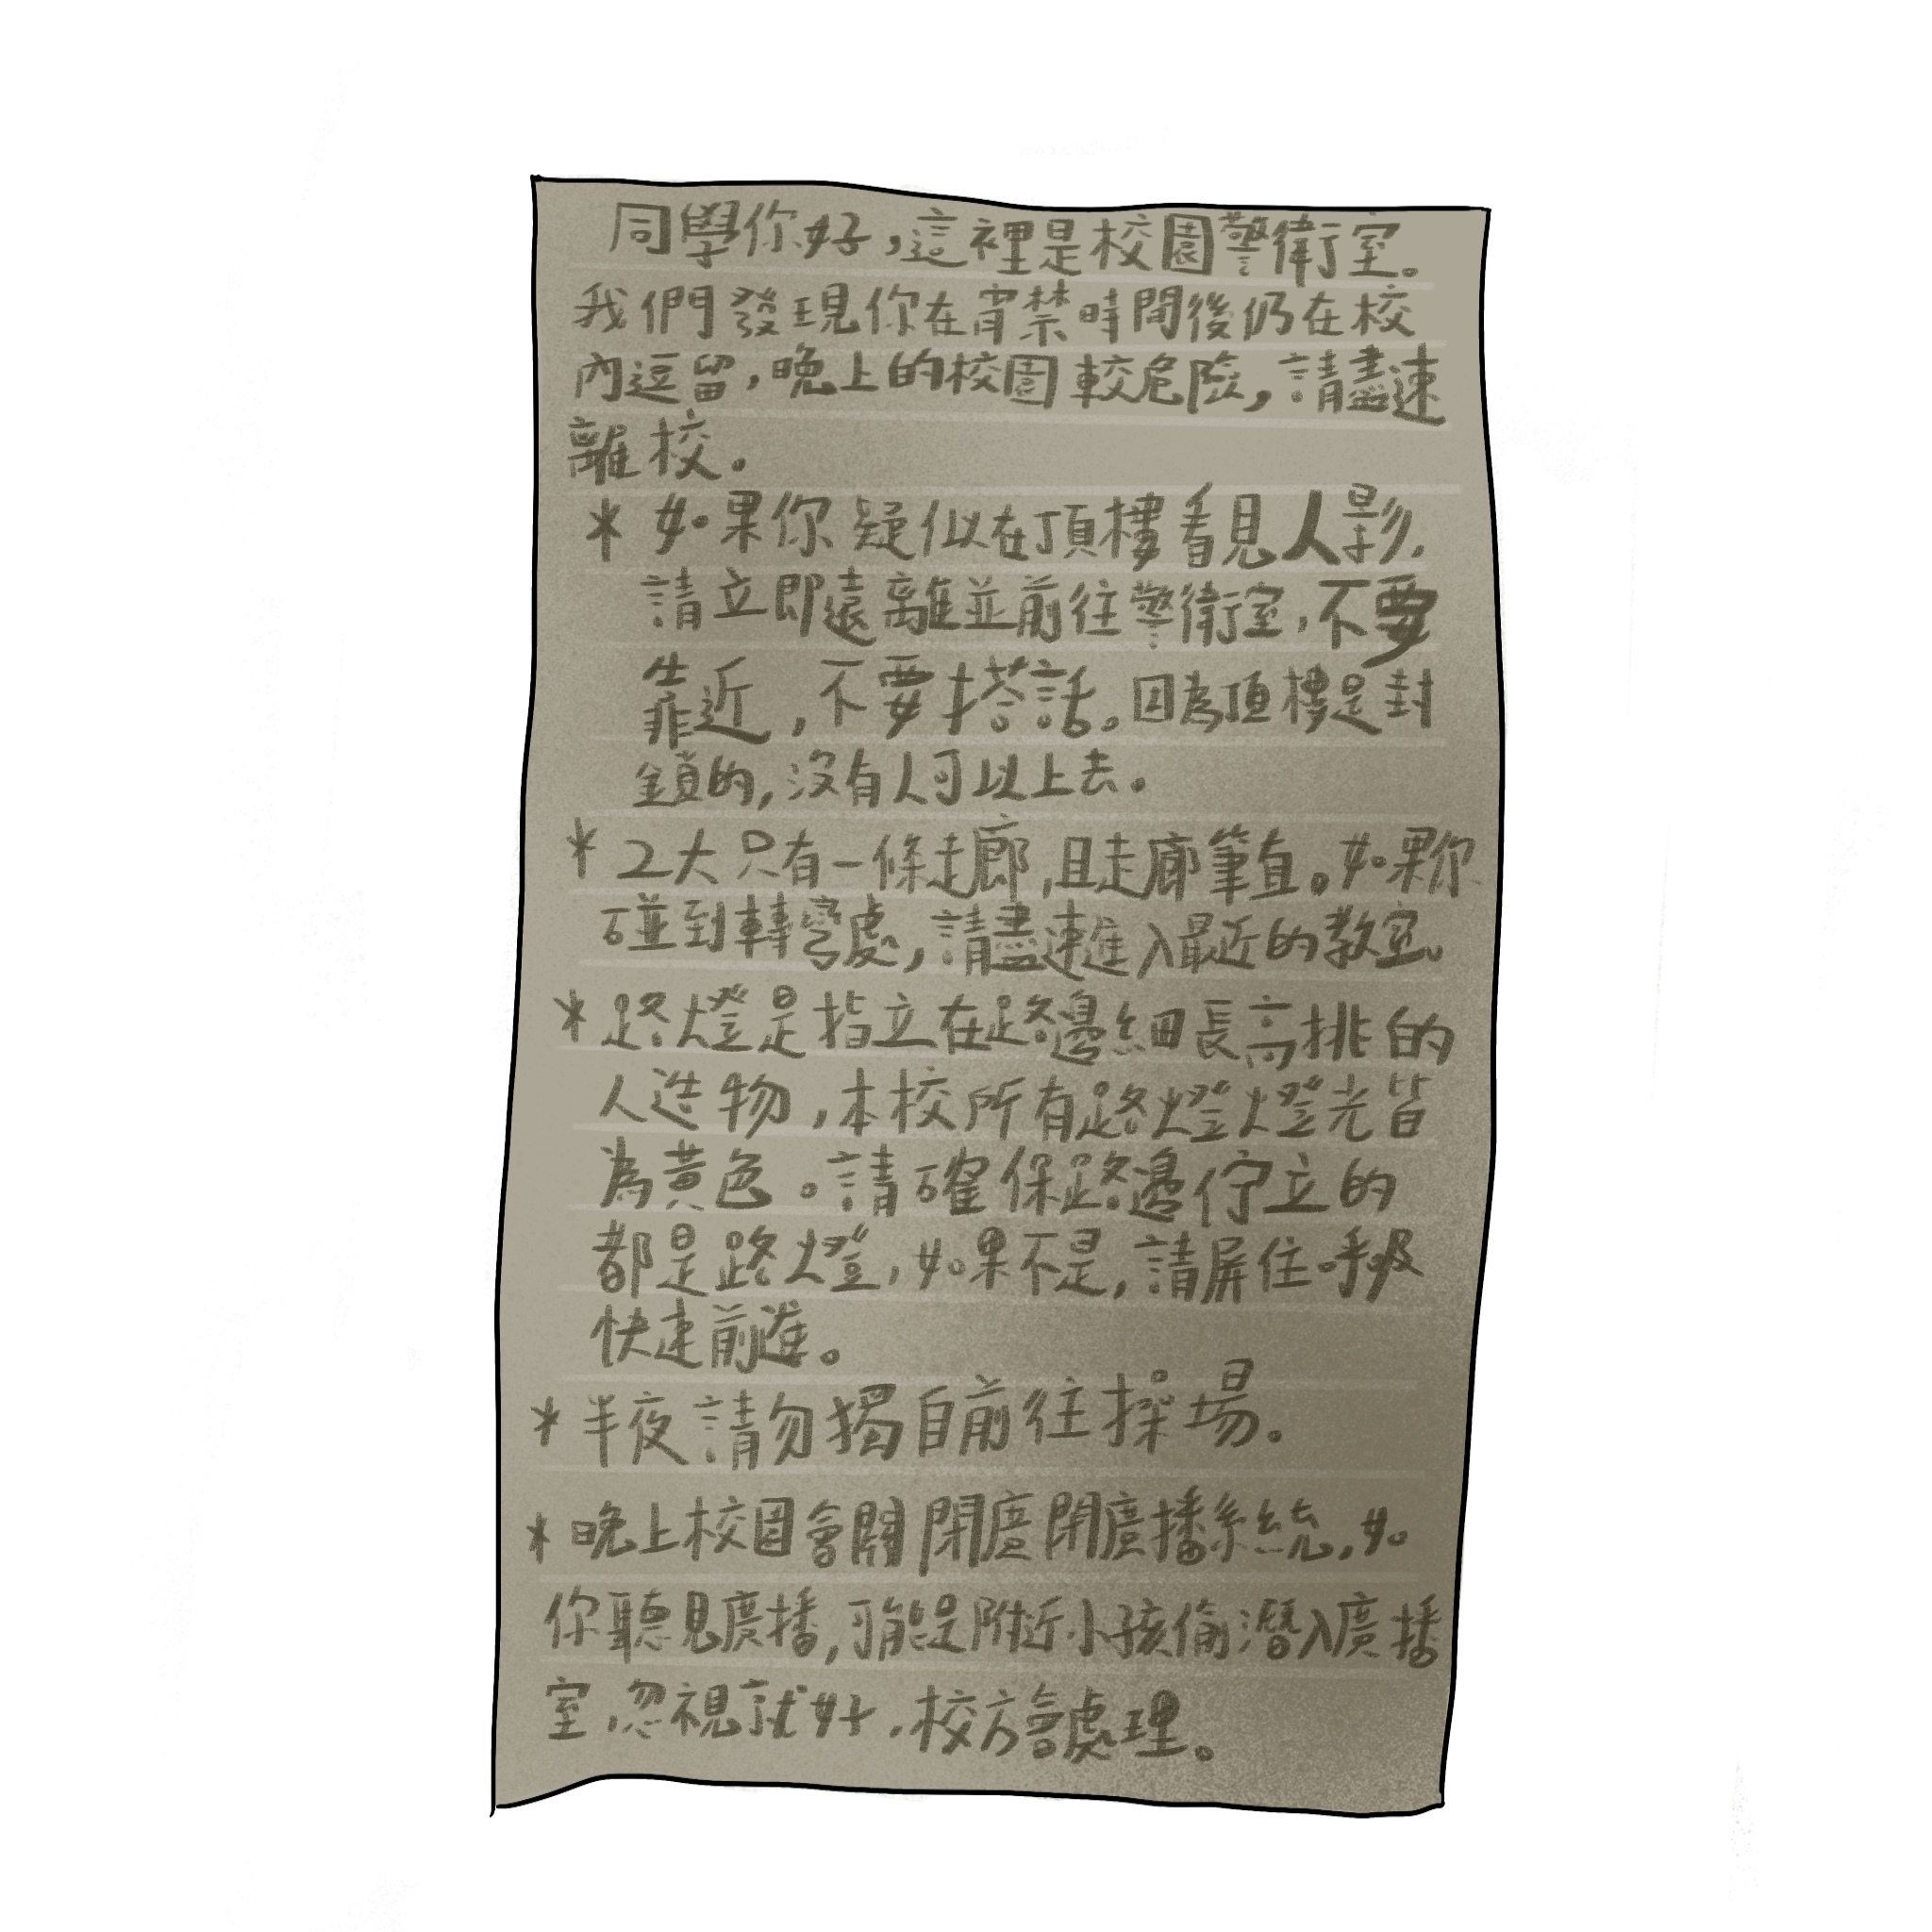 同學你好,這裡是校園警衛室。
我們發現你在宵禁時間後仍在校
內逗留,晚上的校園較危險,請盡速
離校。
* 如果你疑似在頂樓看見人影,
請立即遠離並前往警衛室,不要
靠近,不要搭話。因為頂樓是封
鎖的,沒有人可以上去。
* 工大只有一條走廊,且走廊筆直。如果你
碰到轉彎處,請盡速進入最近的教室。
* 路燈是指立在路邊細長高挑的
人造物,本校所有路燈燈光皆
為黃色。請確保路邊佇立的
都是路燈,如果不是,請屏住呼吸
快速前進。
* 半夜請勿獨自前往操場。
* 晚上校園會關閉廣閉廣播系統,如
你聽見廣播,可能是附近小孩偷潛入廣播
室,忽視就好,校方會處理。